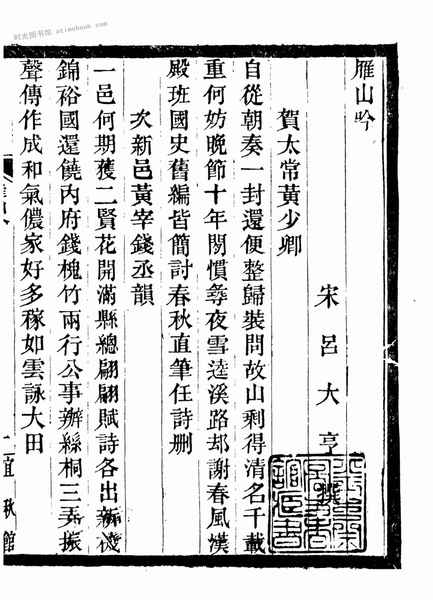 时光图书馆 atimebook.com
雁山吟
宋 呂大亨 撰
賀太常黃少卿
自從朝奏一封還便整歸裝問故山剩得清名千載
重何妨晚節十年閒慣尋夜雪逵溪路却謝春風漢
殿班國史舊編皆簡討春秋直筆任詩刪
次新邑黃宰錢丞韻
一邑何期獲二賢花開滿縣總翩翩賦詩各出新機
錦裕國還饒內府錢槐竹兩行公事辦絲桐三弄振
聲傳作成和氣儂家好多稼如雲詠大田
宜秋館